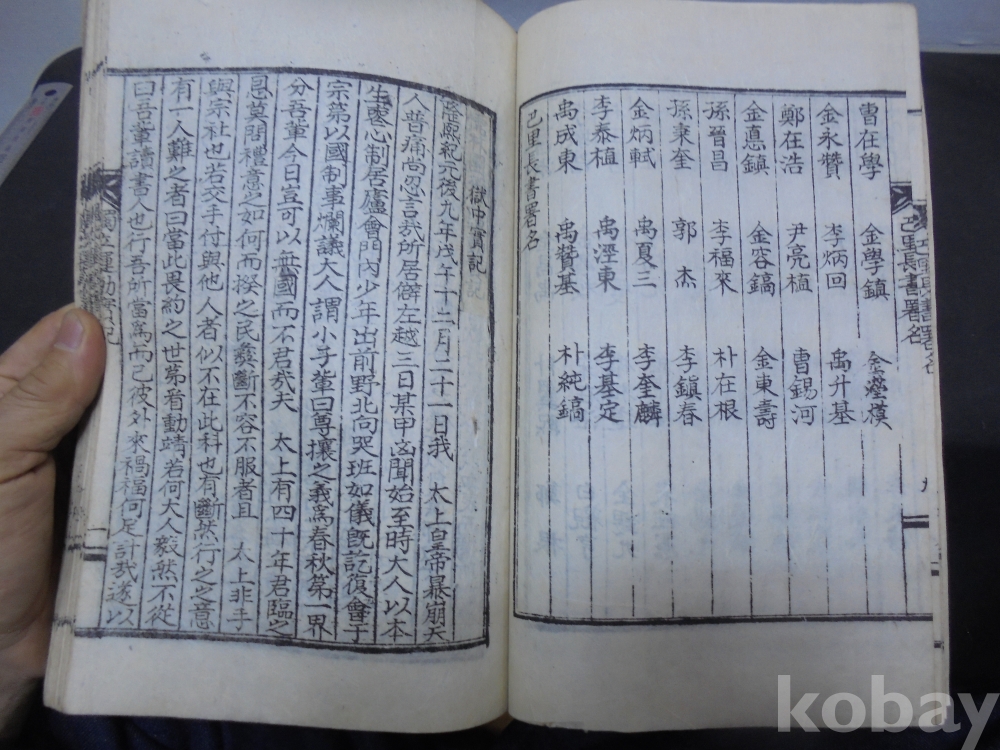 曹在學 金學鎮
金永贊 李炳回 禹升基
鄭在浩 尹亮植 曹錫河
金悳鎮 金容鎬 金東壽
孫晉昌 李福來 朴在根
孫秉奎 郭杰 李鎮春
金炳軾 禹夏三 李奎麟
李泰植 禹涇東 李基定
禹成東 禹贊基 朴純鎬
巴里長書署名
獄中實記
隆熙紀元後九年戊午十二月二十一日我 太上皇帝暴崩天
人普痛尚忍言哉所居僻左越三日某甲凶聞始至時大人以本
生憂心制居廬會門內少年出前野北向哭班如儀旣訖復會子
宗第以國制事爛議大人謂小子輩曰尊攘之義爲春秋第一界
分吾輩今日豈可以無國而不君哉夫 太上有四十年君臨之
恩莫問禮意之如何而揆之民彝斷不容不服者且 太上非手
與宗社也若交手付與他人者似不在此科也有斷然行之之意
有一人難之者曰當此畏約之世第看動靖若何大人毅然不從
曰吾輩讀書人也行吾所當爲而已彼外來禍福何足計哉遂以
巴里長書署名
九
kobay